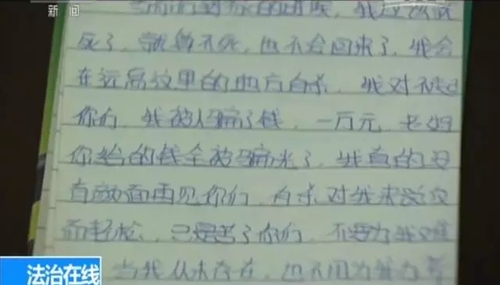 新闻
当你们看到信的时候，我应该已
死了，就算不死，也不会回来了，我会
在远离这里的地方自杀，我对不起
你们，我被人骗了钱，一万元，老妈
你给的钱全被骗光了，我真的没
有颜面再见你们，自杀对我来说反
而轻松，只是苦了你们，不要为我难
当我从未存在，也不用为我
法治在线